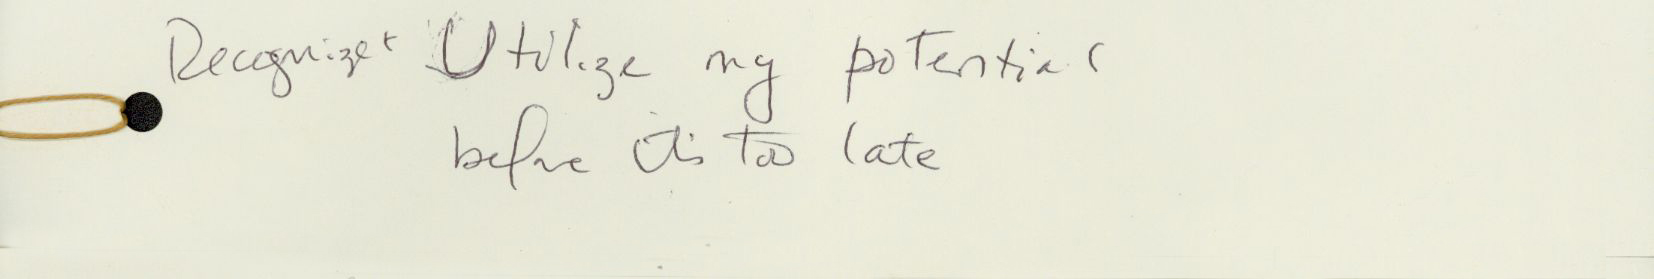 Recognize + Utilize my potential
before it's too late